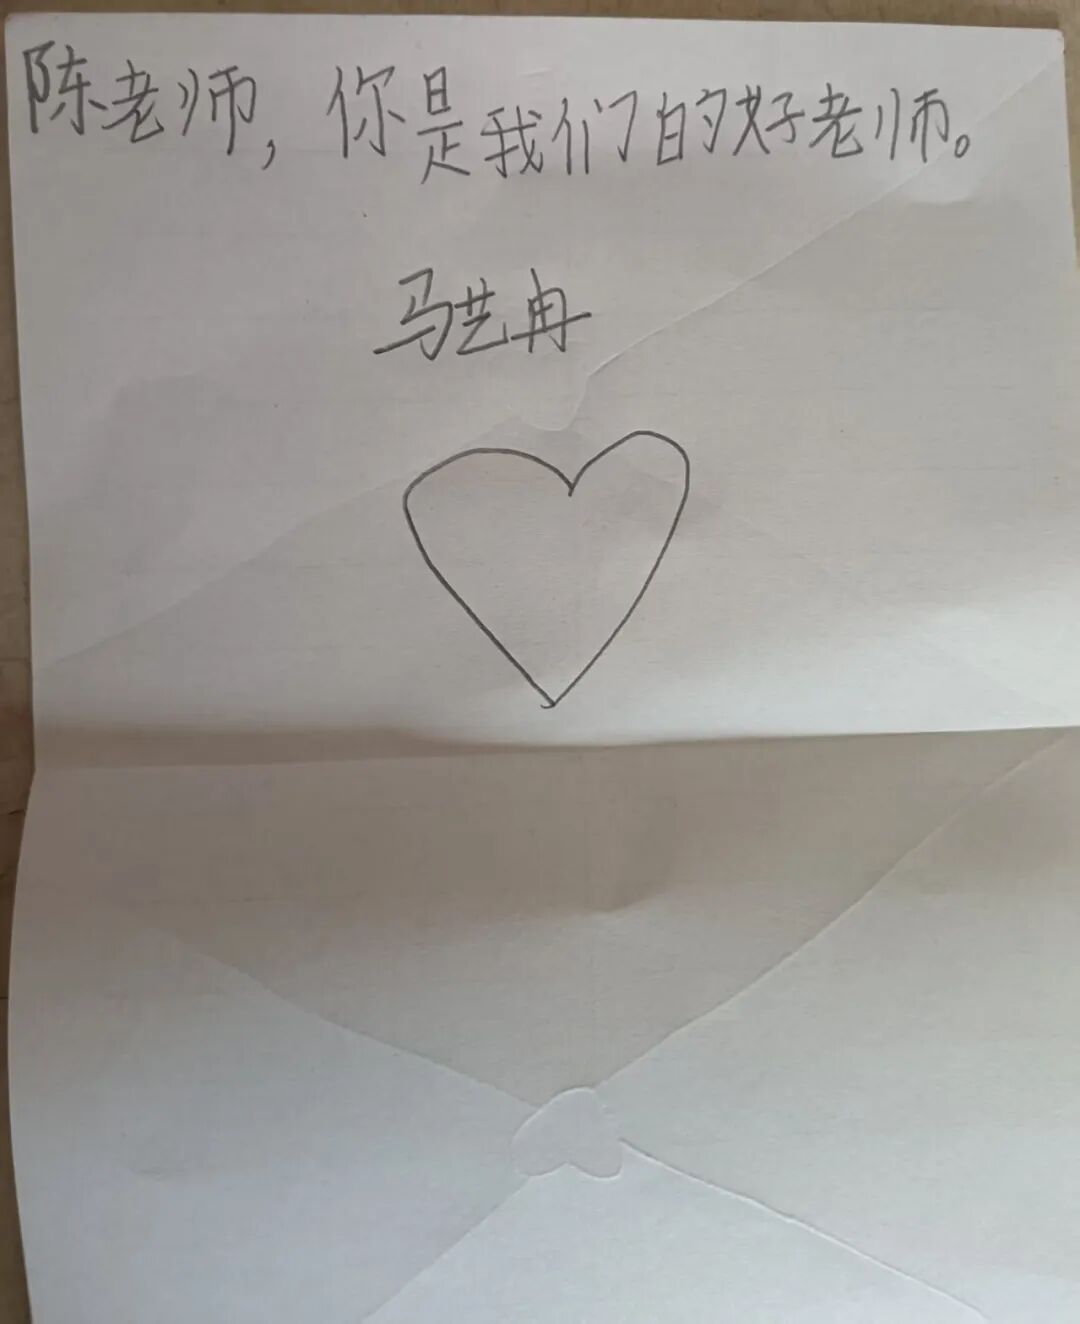 陈老师，你是我们的好老师。
马艺冉